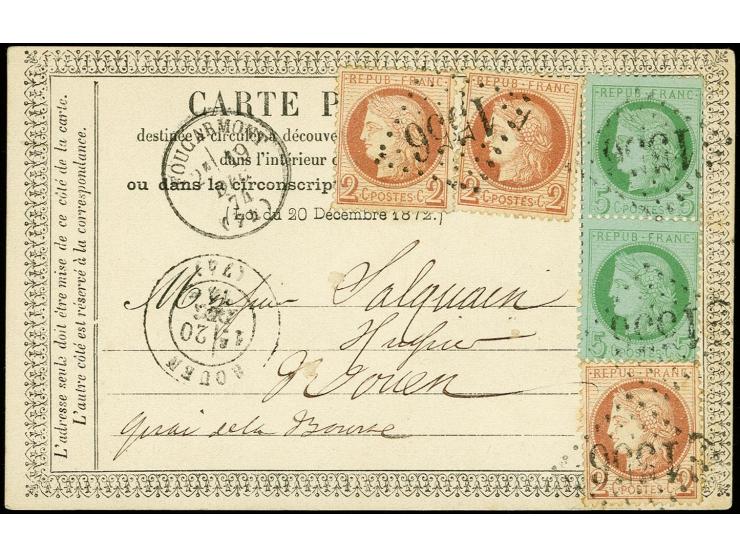 CARTE P
destinée à circuler à découve
dans l'intérieur
ou dans la circonscrip
(Loi du 20 Décembre 1872.)
L'adresse seule doit être mise de ce côté de la carte.
L'autre côté est réservé à la correspondance.
REPUB·FRANC
2 C·POSTES·C 2
REPUB·FRANC
2 C·POSTES·C 2
REPUB·FRANC
5 C·POSTES·C 5
REPUB·FRANC
5 5
REPUB·FRANC
2 C·POSTES·C 2
19
DEC
74
(74)
ROUEN
20
Monsieur Salquain
Huissier
Rouen
Quai de la Bourse